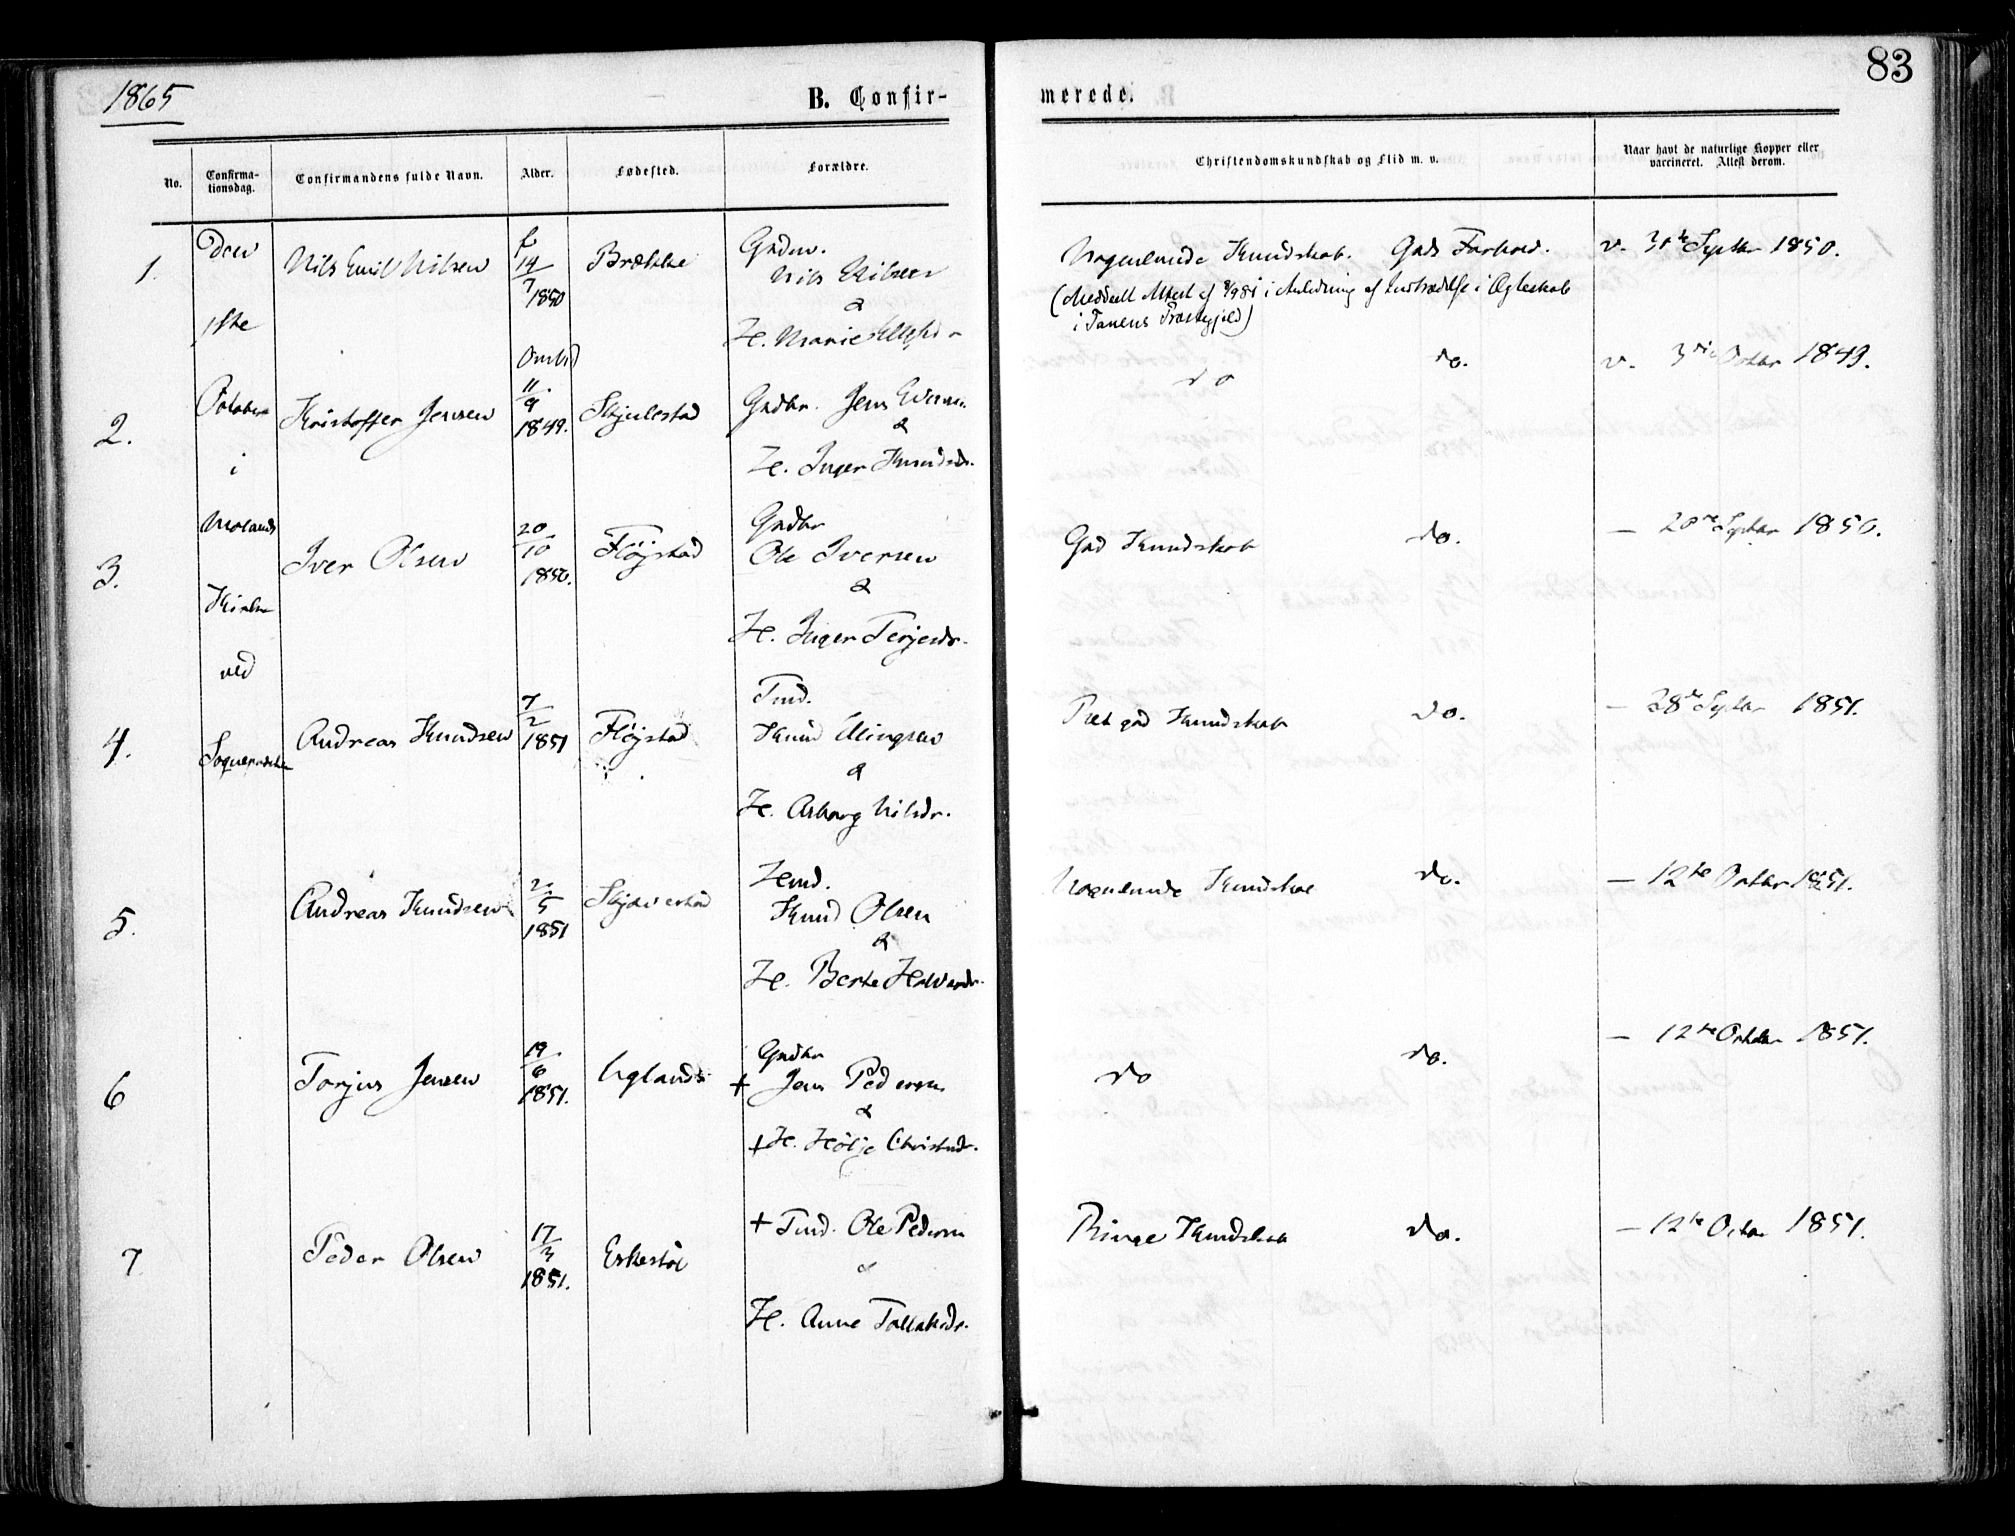 1865
B. Confir-
merede.
83
No.
Confirma-
tionsdag.
Confirmandens fulde Navn.
Alder.
Fødested.
Forældre.
Christendomskundskab og Flid m. v.
Naar havt de naturlige Kopper eller
vaccineret. Attest derom.
den
1ste
October
i
Molands
Kirke
ved
1.
Nils Emil Nilsen
f.
14/7
1850
Omlid
Brække
Nils Nilsen
&
H. Marie
Nogenlunde Kundskab. God Forhold.
(Meddelt Attest af i Anledning af Indtrædelse i Ægteskab
i Præstegjeld)
v. Septbr 1850.
2.
Kristoffer Jensen
11/9
1849.
Skjulestad
Gadbr. Jens
&
H. Inger Knudsdr.
do
do.
v. 3die Octbr 1849.
3.
Iver Olsen
20/10
1850.
Fløjstad
Gadbr
Ole Iversen
&
H. Inger Terjesdr.
God Kundskab
do.
— 20de Septbr 1850.
4.
Andreas Knudsen
7/2
1851
Fløjstad
Knud
&
H. Asborg Nilsdr.
Ret god Kundskab
do.
— 28de Septbr 1851.
5.
Andreas Knudsen
2/5
1851
Knud Olsen
&
H. Berte
Nogenlunde Kundskab
do.
— 12te Octbr 1851.
6
Torjus Jensen
19/6
1851.
Uglands
Gadbr
+ Jens Pedersen
&
+ H. Christensdr.
do
do.
— 12te Octbr 1851.
7
Peder Olsen
17/3
1851.
Eskestøl
+ Ole Pedersen
&
H. Anne Tallaksdr.
Ringe Kundskab
do.
— 12te Octbr 1851.